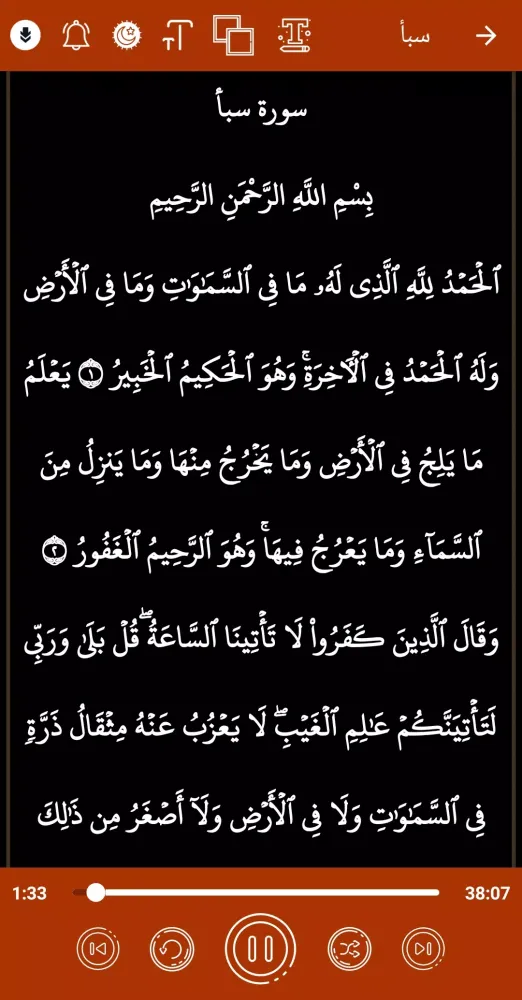 سبأ
سورة سبأ
بِسْمِ اللَّهِ الرَّحْمَنِ الرَّحِيمِ
ٱلْحَمْدُ لِلَّهِ ٱلَّذِى لَهُۥ مَا فِى ٱلسَّمَٰوَٰتِ وَمَا فِى ٱلْأَرْضِ
وَلَهُ ٱلْحَمْدُ فِى ٱلْـَٔاخِرَةِۚ وَهُوَ ٱلْحَكِيمُ ٱلْخَبِيرُ ۝١ يَعْلَمُ
مَا يَلِجُ فِى ٱلْأَرْضِ وَمَا يَخْرُجُ مِنْهَا وَمَا يَنزِلُ مِنَ
ٱلسَّمَآءِ وَمَا يَعْرُجُ فِيهَاۚ وَهُوَ ٱلرَّحِيمُ ٱلْغَفُورُ ۝٢
وَقَالَ ٱلَّذِينَ كَفَرُوا۟ لَا تَأْتِينَا ٱلسَّاعَةُۖ قُلْ بَلَىٰ وَرَبِّى
لَتَأْتِيَنَّكُمْ عَٰلِمِ ٱلْغَيْبِۖ لَا يَعْزُبُ عَنْهُ مِثْقَالُ ذَرَّةٍۢ
فِى ٱلسَّمَٰوَٰتِ وَلَا فِى ٱلْأَرْضِ وَلَآ أَصْغَرُ مِن ذَٰلِكَ
1:33 38:07